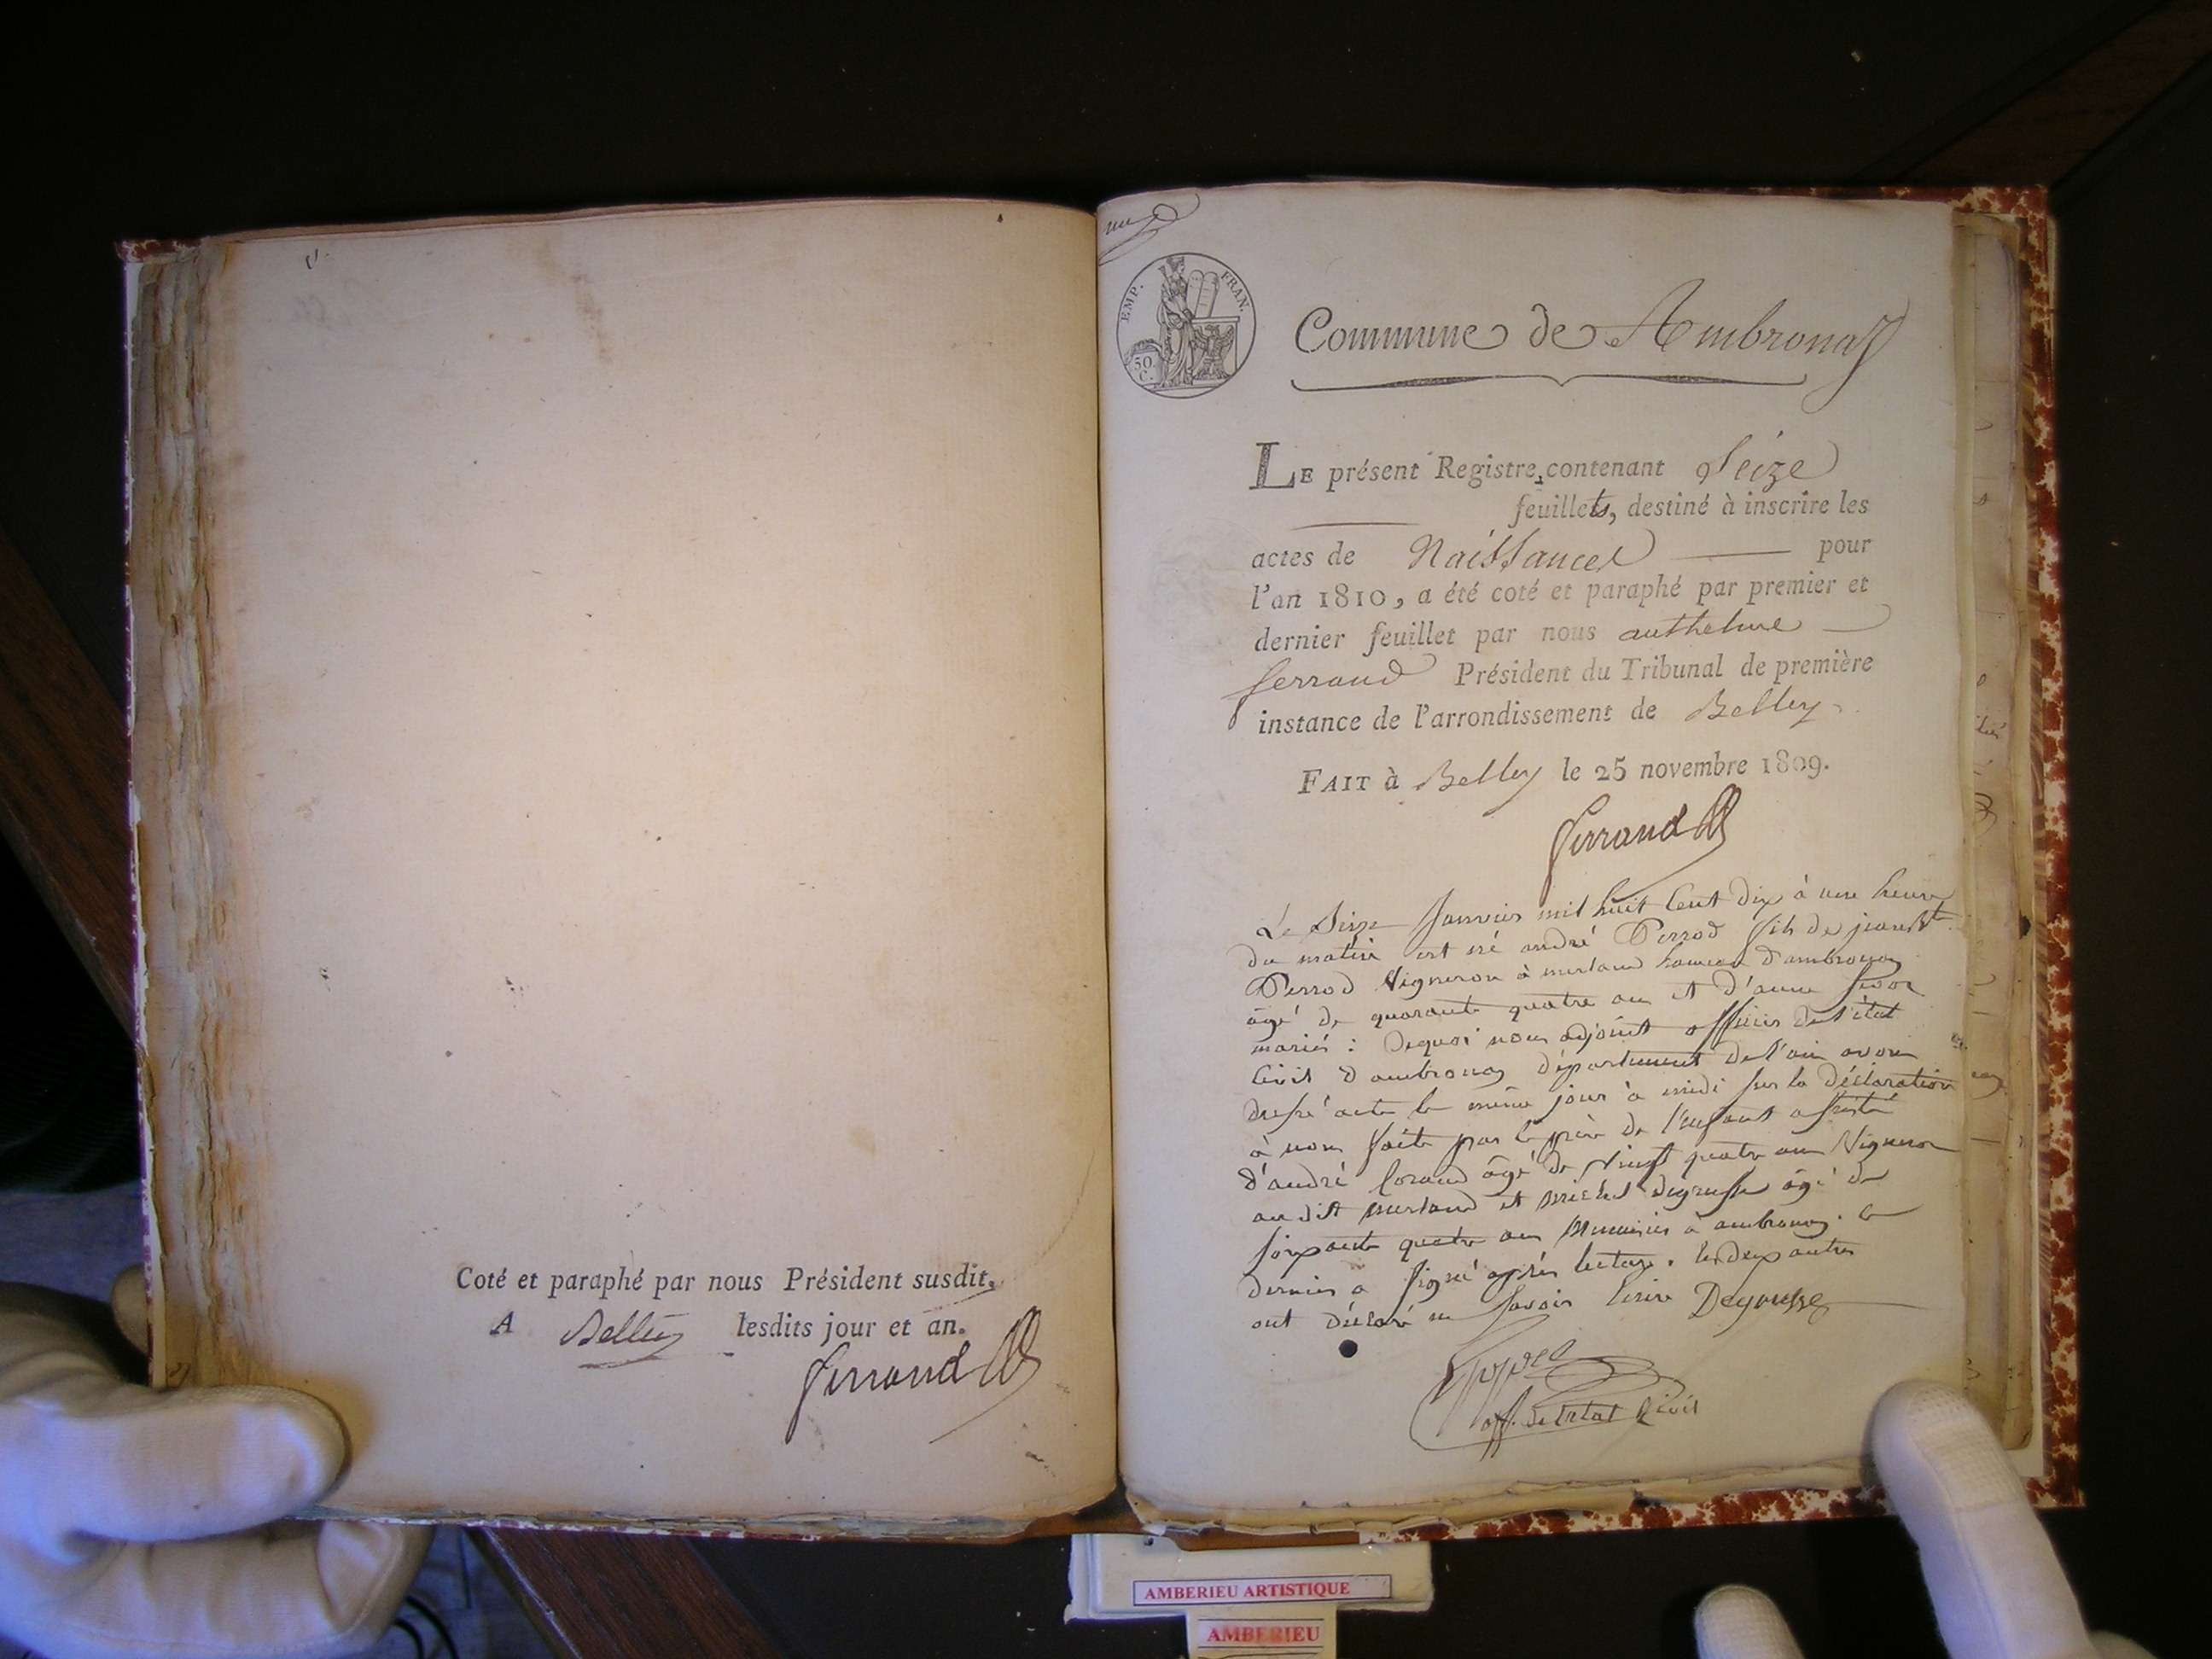 Coté et paraphé par nous Président susdit.
A Belley lesdits jour et an.
Ferrand
EMP. FRAN.
50 C.
Commune de Ambronay
LE présent Registre, contenant Seize
feuillets, destiné à inscrire les
actes de Naissances pour
l'an 1810, a été coté et paraphé par premier et
dernier feuillet par nous anthelme
ferrand Président du Tribunal de première
instance de l'arrondissement de Belley
FAIT à Belley le 25 novembre 1809.
Ferrand
Le Seize Janvier mil huit Cent Dix à une heure
du matin est né andré Perrod fils de jean Bte
Perrod Vigneron à merland hameau d'ambronay
âgé de quarante quatre ans et d'anne
mariés : Dequoi nous adjoint officier de l'état
Civil d'ambronay département de l'ain avons
dressé acte le même jour à midi sur la déclaration
à nous faite par le père de l'enfant assisté
d'andré âgé de vingt quatre ans Vigneron
au dit merland et michel degousse âgé de
soixante quatre ans à ambronay. le
dernier a signé après lecture. les deux autres
ont déclaré ne savoir Ecrire Degousse
off. de l'etat Civil
AMBERIEU ARTISTIQUE
AMBERIEU